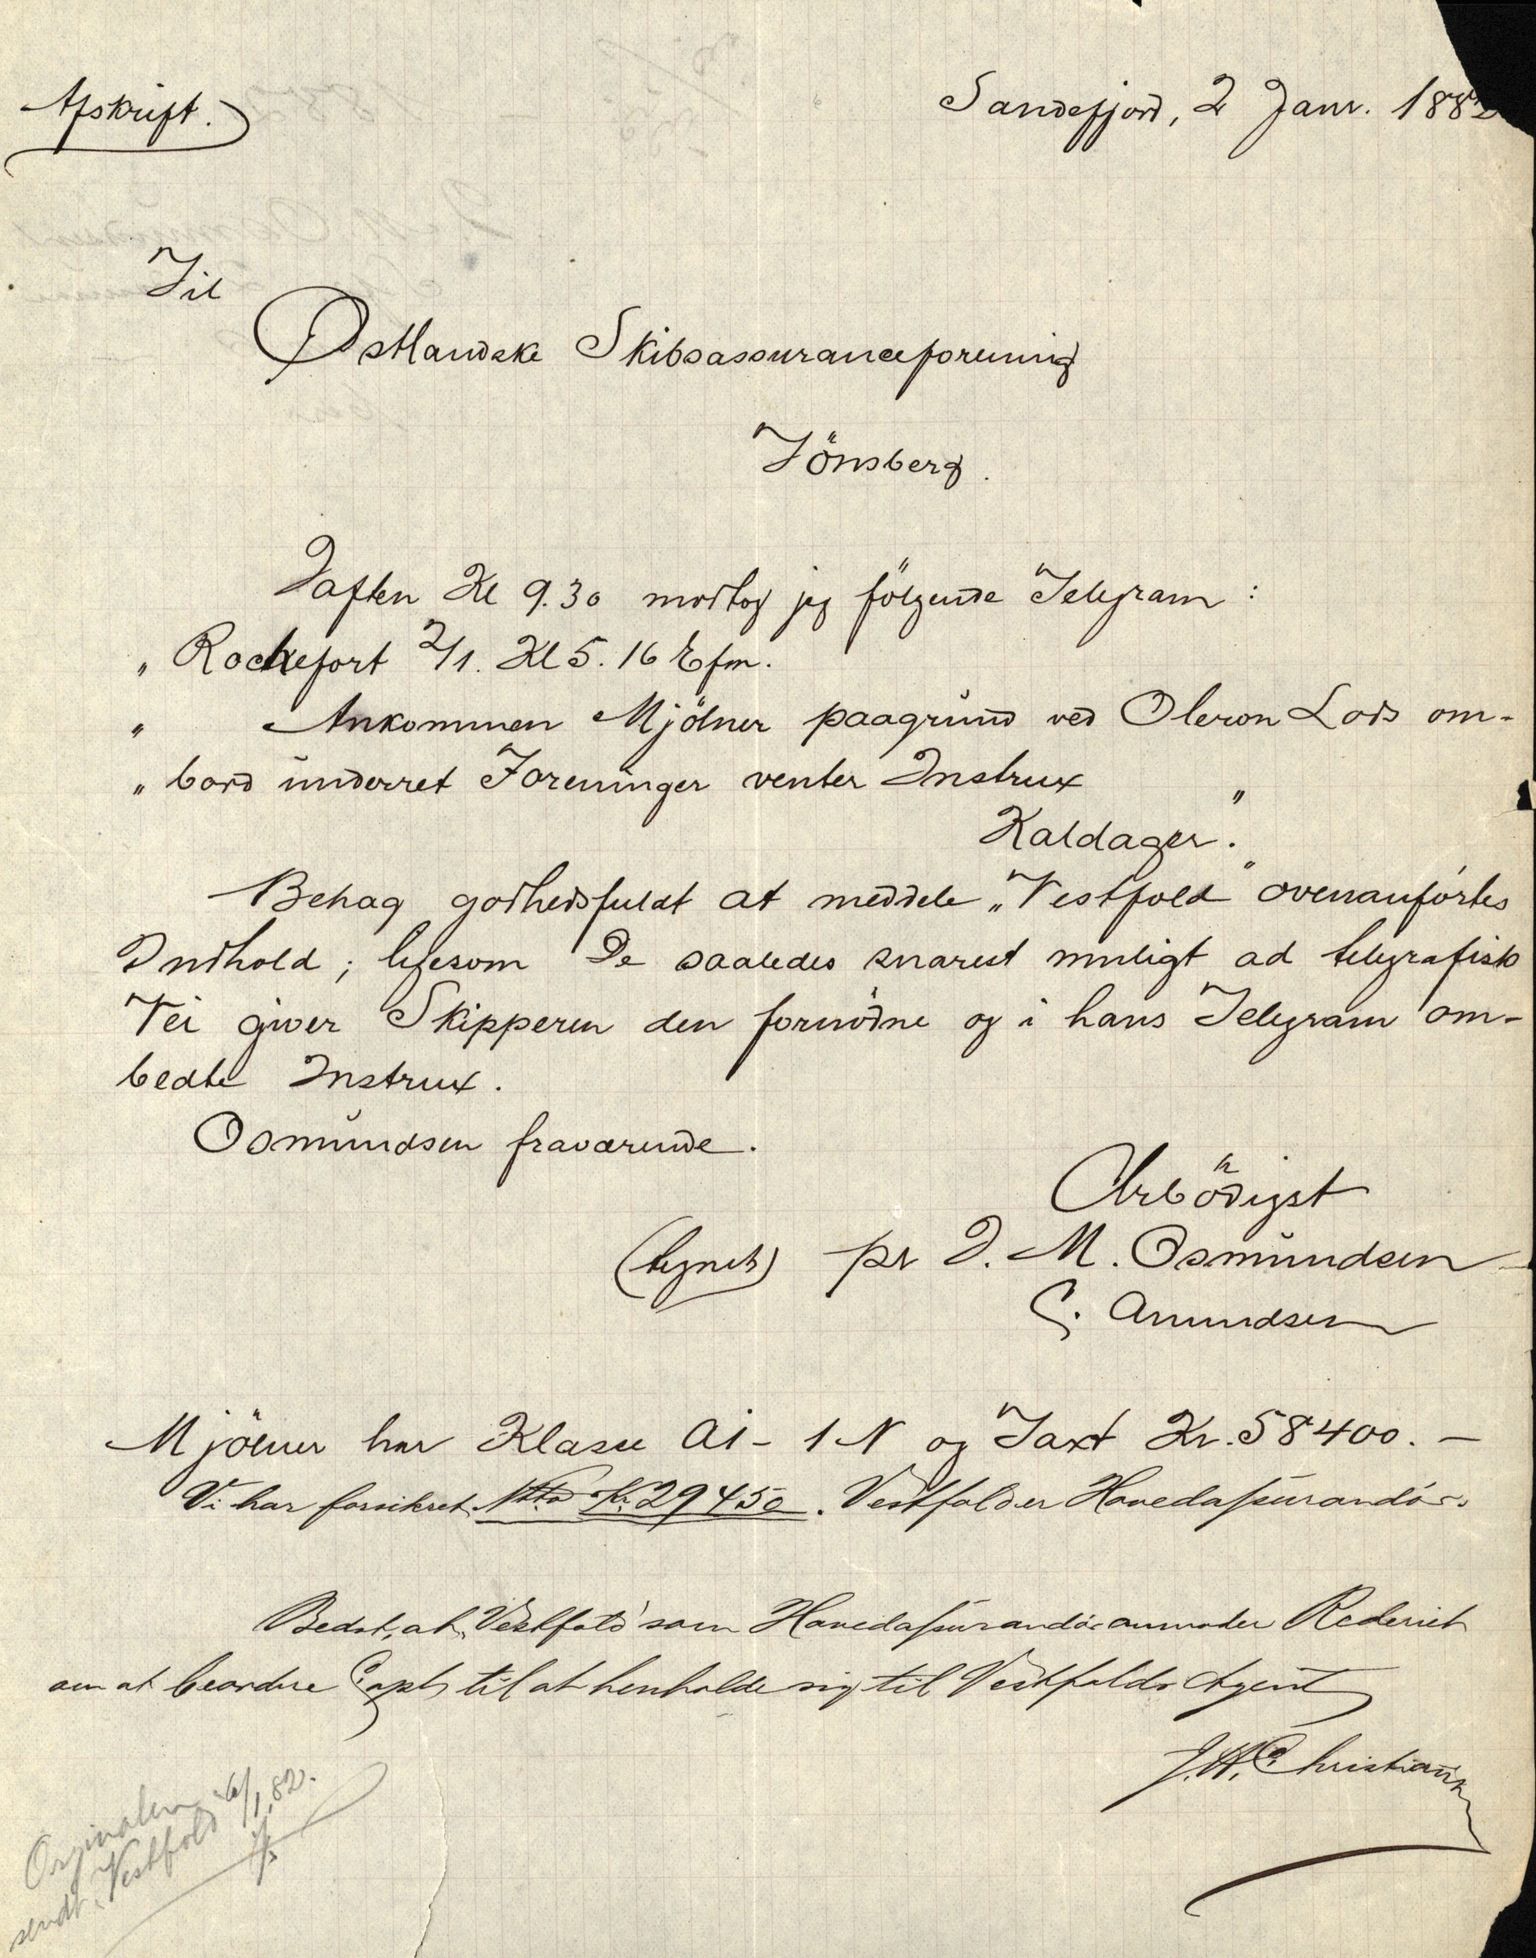 Afskrift.
Sandefjord, 2 Janr. 1882
Til
Østlandske Skibsassuranceforening
Tönsberg.
Iaften Kl 9.30 modtog jeg fölgende Telegram:
„ Rochefort 2/1. Kl 5.16 Efm.
„ Ankommen Mjölner paagrund ved Oleron Lods om-
„ bord underret Foreninger venter Instrux
Kaldager."
Behag godhedsfuldt at meddele „Vestfold" ovenanförtes
Indhold; ligesom De saaledes snarest muligt ad telegrafisk
Vei giver Skipperen den fornødne og i hans Telegram om-
bedte Instrux.
Osmundsen fraværende.
Ærbödigst
(tegnet) pr J. M. Osmundsen
C. Amundsen
Mjölner har Klasse A1 - 1 N og Taxt Kr. 58400. —
Vi har forsikret Netto Kr. 29450. Vestfold er Hovedassurandör.
Bedst, at „Vestfold" som Hovedassurandör anmoder Rederiet
om at beordre Capt. til at henholde sig til Vestfolds Agent
J. H. Christiansen
Orginalen
sendt „Vestfold 4/1.82.